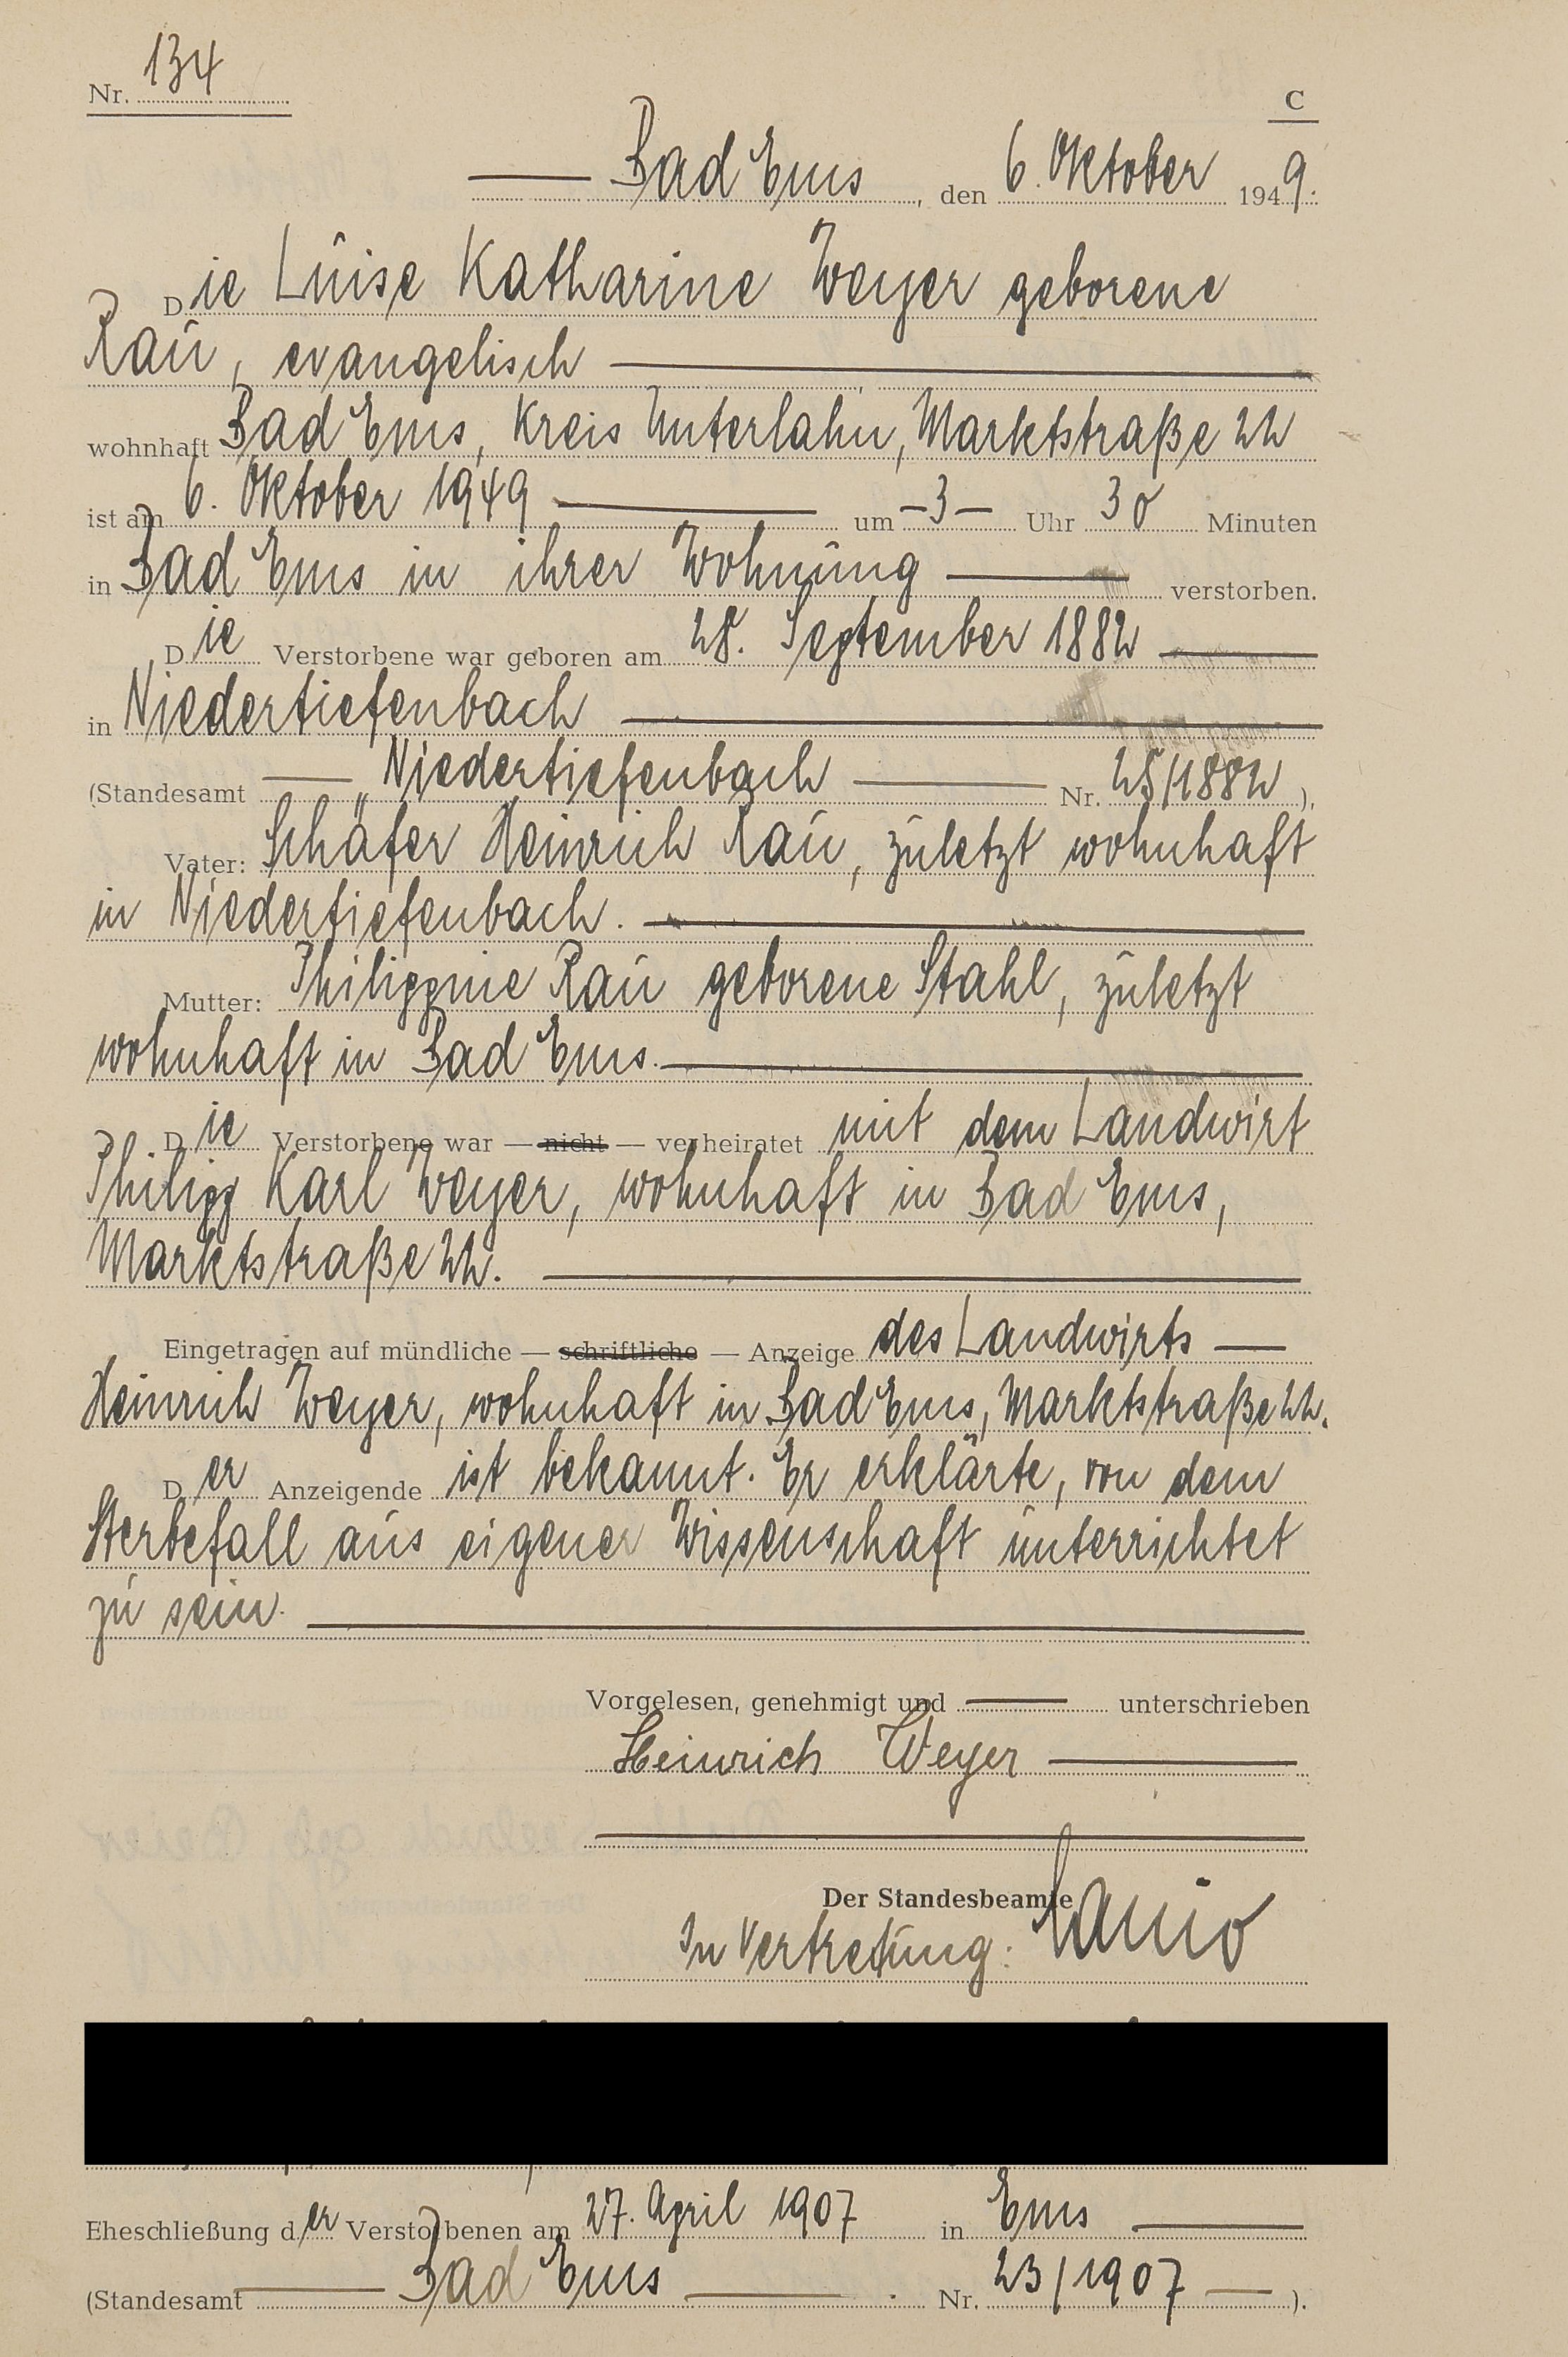 Nr. 134
C
Bad Ems, den 6. Oktober 1949.
Die Luise Katharine Weyer geborene
Rau, evangelisch
wohnhaft Bad Ems, Kreis Unterlahn, Marktstraße 22
ist am 6. Oktober 1949 um -3- Uhr 30 Minuten
in Bad Ems in ihrer Wohnung verstorben.
Die Verstorbene war geboren am 28. September 1882
in Niedertiefenbach
(Standesamt Niedertiefenbach Nr. 25/1882),
Vater: Schäfer Heinrich Rau, zuletzt wohnhaft
in Niedertiefenbach.
Mutter: Philippine Rau geborene Stahl, zuletzt
wohnhaft in Bad Ems.
Die Verstorbene war — nicht — verheiratet mit dem Landwirt
Philipp Karl Weyer, wohnhaft in Bad Ems,
Marktstraße 22.
Eingetragen auf mündliche — schriftliche — Anzeige des Landwirts
Heinrich Weyer, wohnhaft in Bad Ems, Marktstraße 22.
Der Anzeigende ist bekannt. Er erklärte, von dem
Sterbefall aus eigener Wissenschaft unterrichtet
zu sein.
Vorgelesen, genehmigt und unterschrieben
Heinrich Weyer
Der Standesbeamte
In Vertretung:
Eheschließung der Verstorbenen am 27. April 1907 in Ems
(Standesamt Bad Ems Nr. 23/1907).